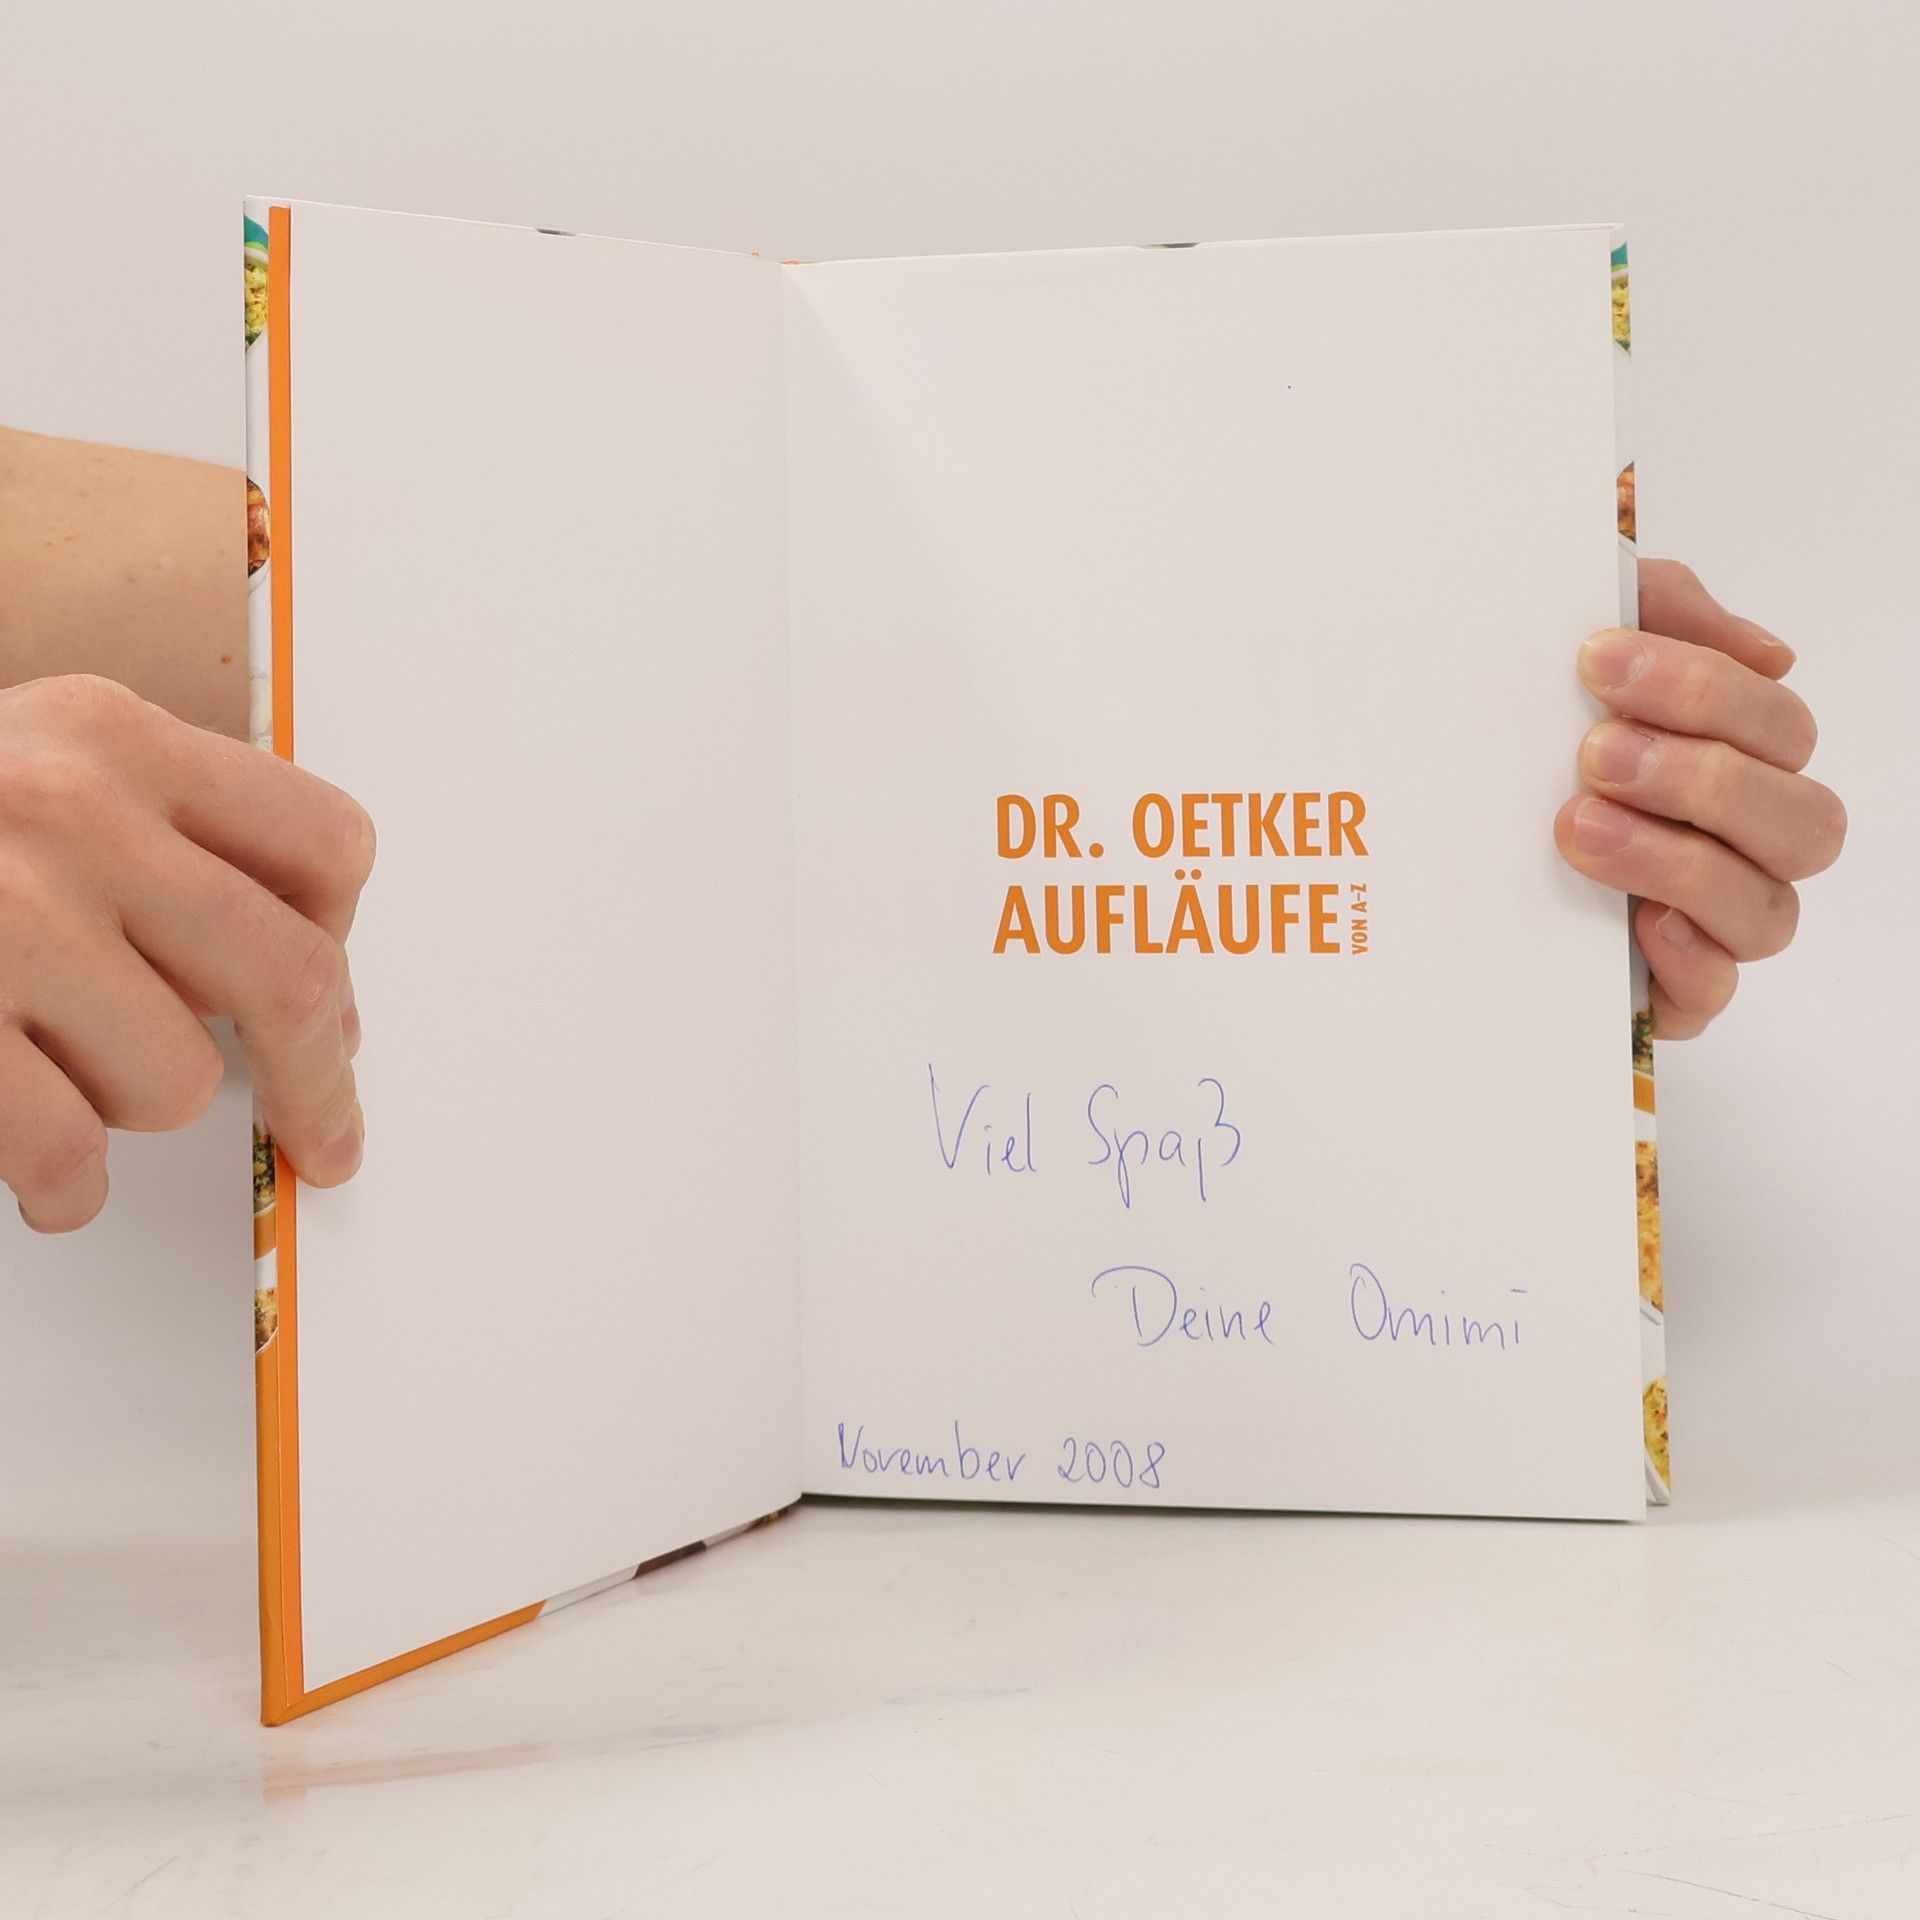 DR. OETKER
AUFLÄUFE VON A-Z
Viel Spaß
Deine Omimi
November 2008